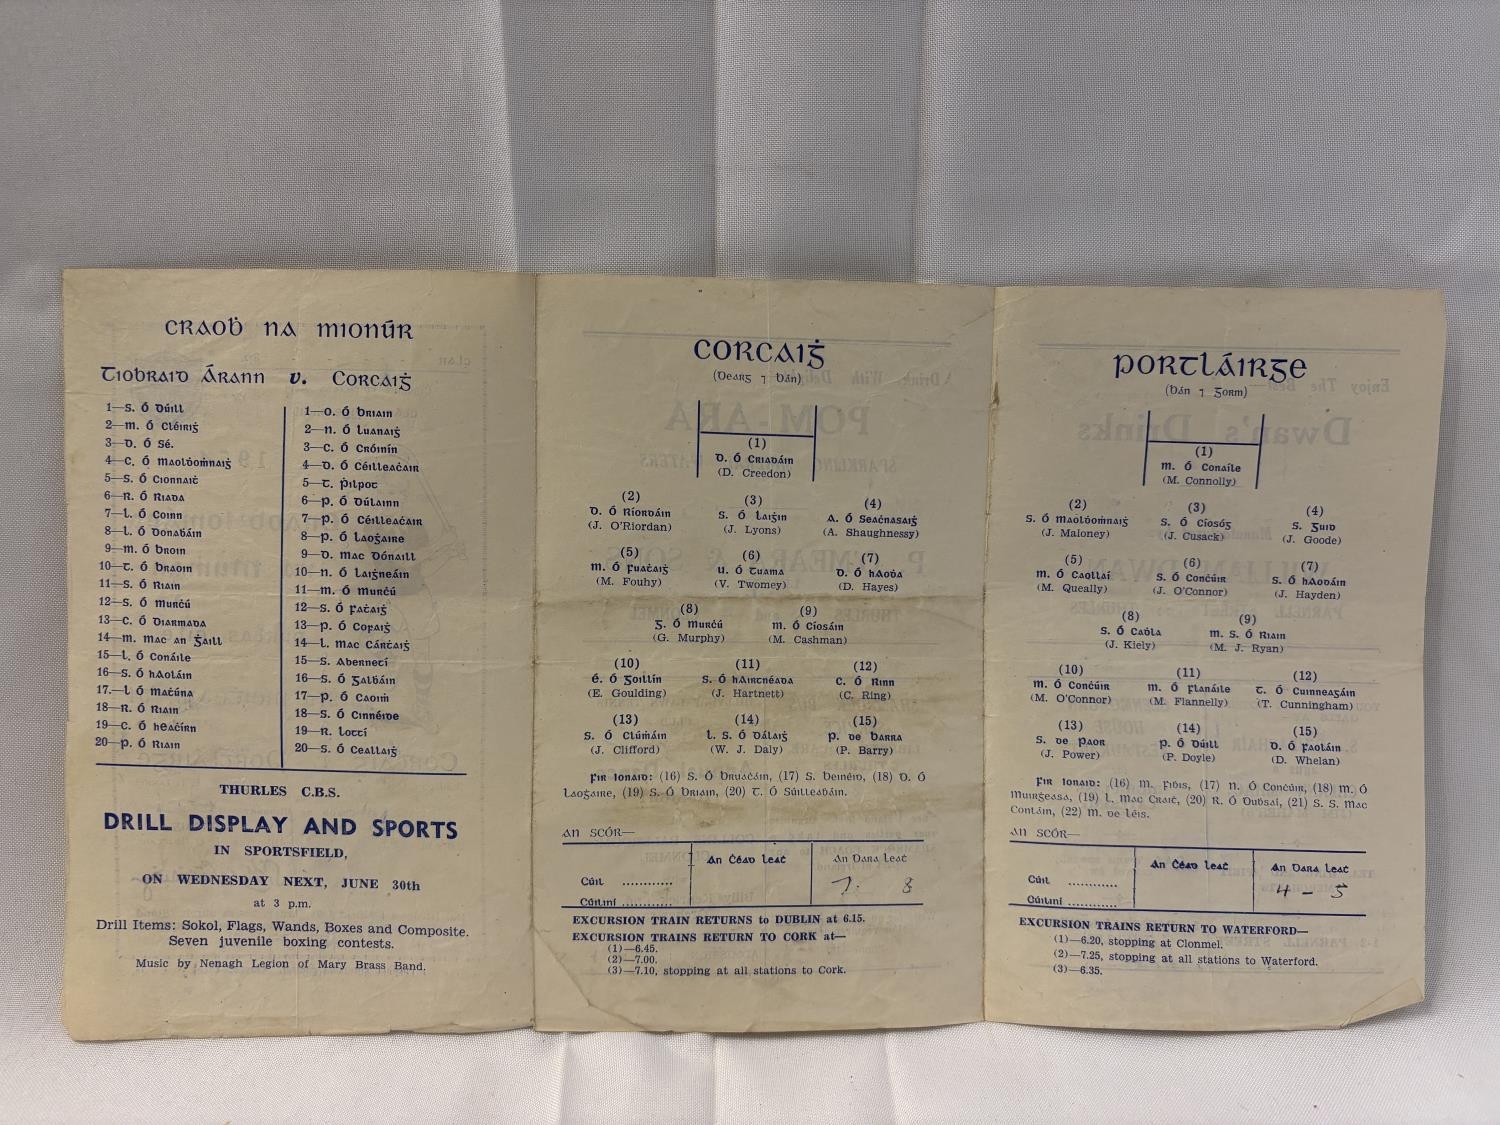 Craoḃ na Mionúr
Tiobraid Árann v. Corcaiġ
1—S. Ó Dúill
2—M. Ó Cléiriġ
3—D. Ó Sé.
4—C. Ó Maoldoṁnaiġ
5—S. Ó Cionnaiċ
6—R. Ó Riada
7—L. Ó Coinn
8—L. Ó Donabáin
9—M. Ó Broin
10—T. Ó Braoin
11—S. Ó Riain
12—S. Ó Murċú
13—C. Ó Diarmada
14—M. Mac an Ġaill
15—L. Ó Conáile
16—S. Ó hAoláin
17.—L Ó Maċúna
18—R. Ó Riain
19—C. Ó hEaċírn
20—P. Ó Riain
1—O. Ó Briain
2—N. Ó Luanaiġ
3—C. Ó Cróinín
4—D. Ó Céilleaċair
5—T. Pilpot
6—P. Ó Dúlainn
7—P. Ó Céilleaċair
8—P. Ó Laoġaire
9—D. Mac Dónaill
10—N. Ó Laiġneáin
11—M. Ó Murċú
12—S. Ó Faṫaiġ
13—P. Ó Cofaiġ
14—L. Mac Cárṫaiġ
15—S. Aberneċí
16—S. Ó Galbáin
17—P. Ó Caoiṁ
18—S. Ó Cinnéide
19—R. Lottí
20—S. Ó Ceallaiġ
THURLES C.B.S.
DRILL DISPLAY AND SPORTS
IN SPORTSFIELD,
ON WEDNESDAY NEXT, JUNE 30th
at 3 p.m.
Drill Items: Sokol, Flags, Wands, Boxes and Composite.
Seven juvenile boxing contests.
Music by Nenagh Legion of Mary Brass Band.
Corcaiġ
(Dearg ⁊ Bán)
(1)
D. Ó Criadáin
(D. Creedon)
(2) (3) (4)
D. Ó Ríordáin S. Ó Laiġin A. Ó Seaċnasaiġ
(J. O'Riordan) (J. Lyons) (A. Shaughnessy)
(5) (6) (7)
M. Ó Fuaṫaiġ U. Ó Tuama D. Ó hAoḋa
(M. Fouhy) (V. Twomey) (D. Hayes)
(8) (9)
G. Ó Murċú M. Ó Cíosáin
(G. Murphy) (M. Cashman)
(10) (11) (12)
É. Ó Goillín S. Ó hAirtnéada C. Ó Rinn
(E. Goulding) (J. Hartnett) (C. Ring)
(13) (14) (15)
S. Ó Clúmáin L. S. Ó Dálaiġ P. de Barra
(J. Clifford) (W. J. Daly) (P. Barry)
Fir Ionaid: (16) S. Ó Bruaċáin, (17) S. Beinéid, (18) D. Ó
Laoġaire, (19) S. Ó Briain, (20) T. Ó Súilleabáin.
An Scór—
An Ċéad Leaṫ An Dara Leaṫ
Cúil ............ 7. 8
Cúilíní ............
EXCURSION TRAIN RETURNS to DUBLIN at 6.15.
EXCURSION TRAINS RETURN TO CORK at—
(1)—6.45.
(2)—7.00.
(3)—7.10, stopping at all stations to Cork.
Portláirge
(Bán ⁊ Gorm)
(1)
M. Ó Conaile
(M. Connolly)
(2) (3) (4)
S. Ó Maoldoṁnaiġ S. Ó Cíosóg S. Guid
(J. Maloney) (J. Cusack) (J. Goode)
(5) (6) (7)
M. Ó Caollaí S. Ó Conċúir S. Ó hAodáin
(M. Queally) (J. O'Connor) (J. Hayden)
(8) (9)
S. Ó Caḋla M. S. Ó Riain
(J. Kiely) (M. J. Ryan)
(10) (11) (12)
M. Ó Conċúir M. Ó Flanáile T. Ó Cuinneagáin
(M. O'Connor) (M. Flannelly) (T. Cunningham)
(13) (14) (15)
S. de Paor P. Ó Dúill D. Ó Faoláin
(J. Power) (P. Doyle) (D. Whelan)
Fir Ionaid: (16) M. Fibis, (17) N. Ó Conċúir, (18) M. Ó
Muirġeasa, (19) L. Mac Craiṫ, (20) R. Ó Duḃsaí, (21) S. S. Mac
Contáin, (22) M. de Léis.
An Scór—
An Ċéad Leaṫ An Dara Leaṫ
Cúil ............ 4 - 5
Cúilíní ............
EXCURSION TRAINS RETURN TO WATERFORD—
(1)—6.20, stopping at Clonmel.
(2)—7.25, stopping at all stations to Waterford.
(3)—6.35.